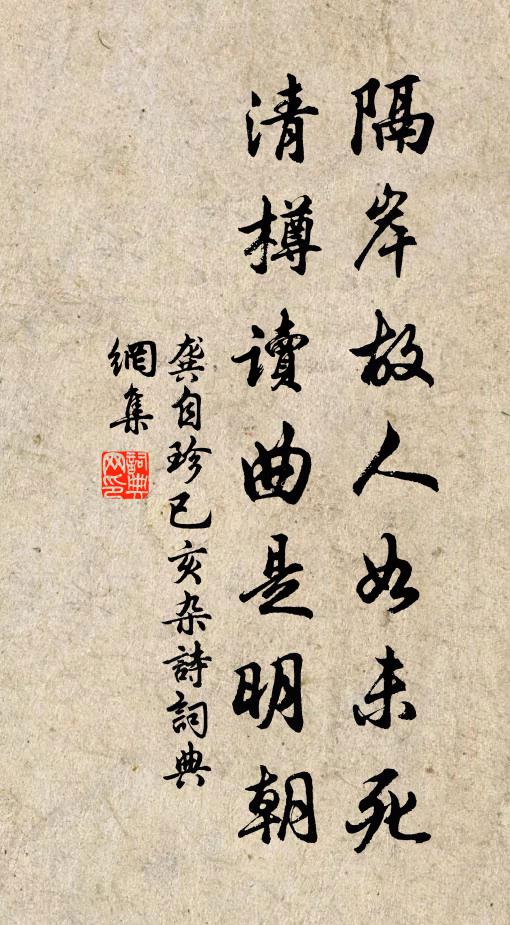 隔岸故人如未死
清樽讀曲是明朝
龔自珍已亥杂詩詞典
網集
詞典
网印